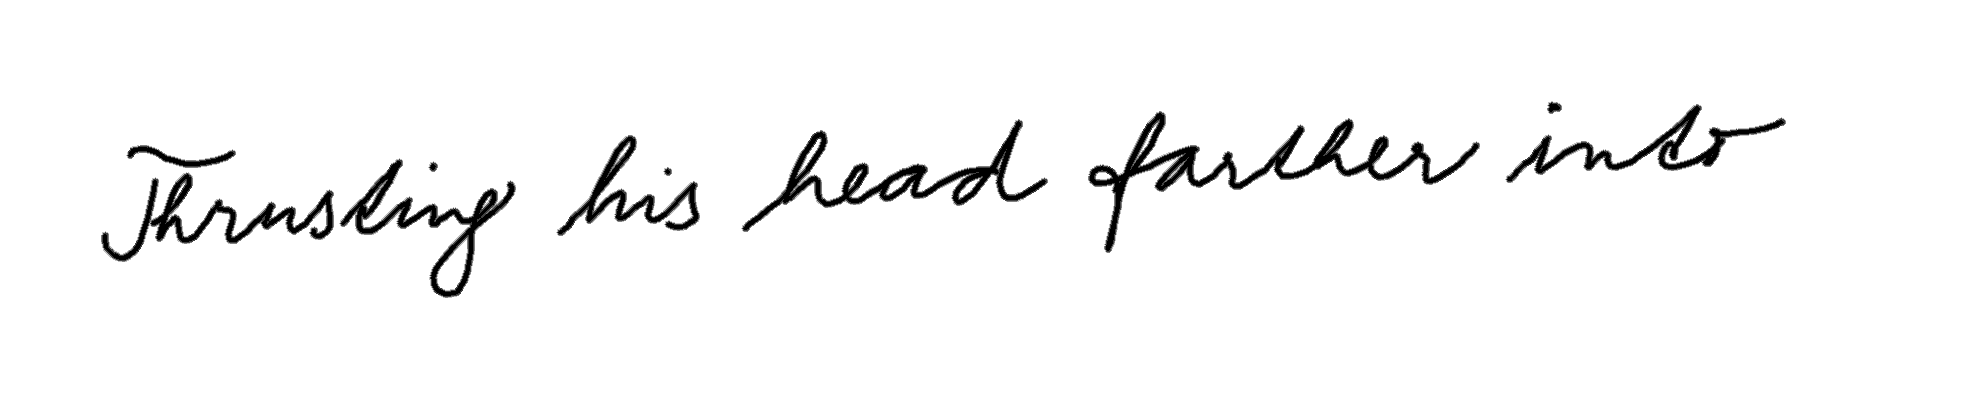 Thrusting his head farther into